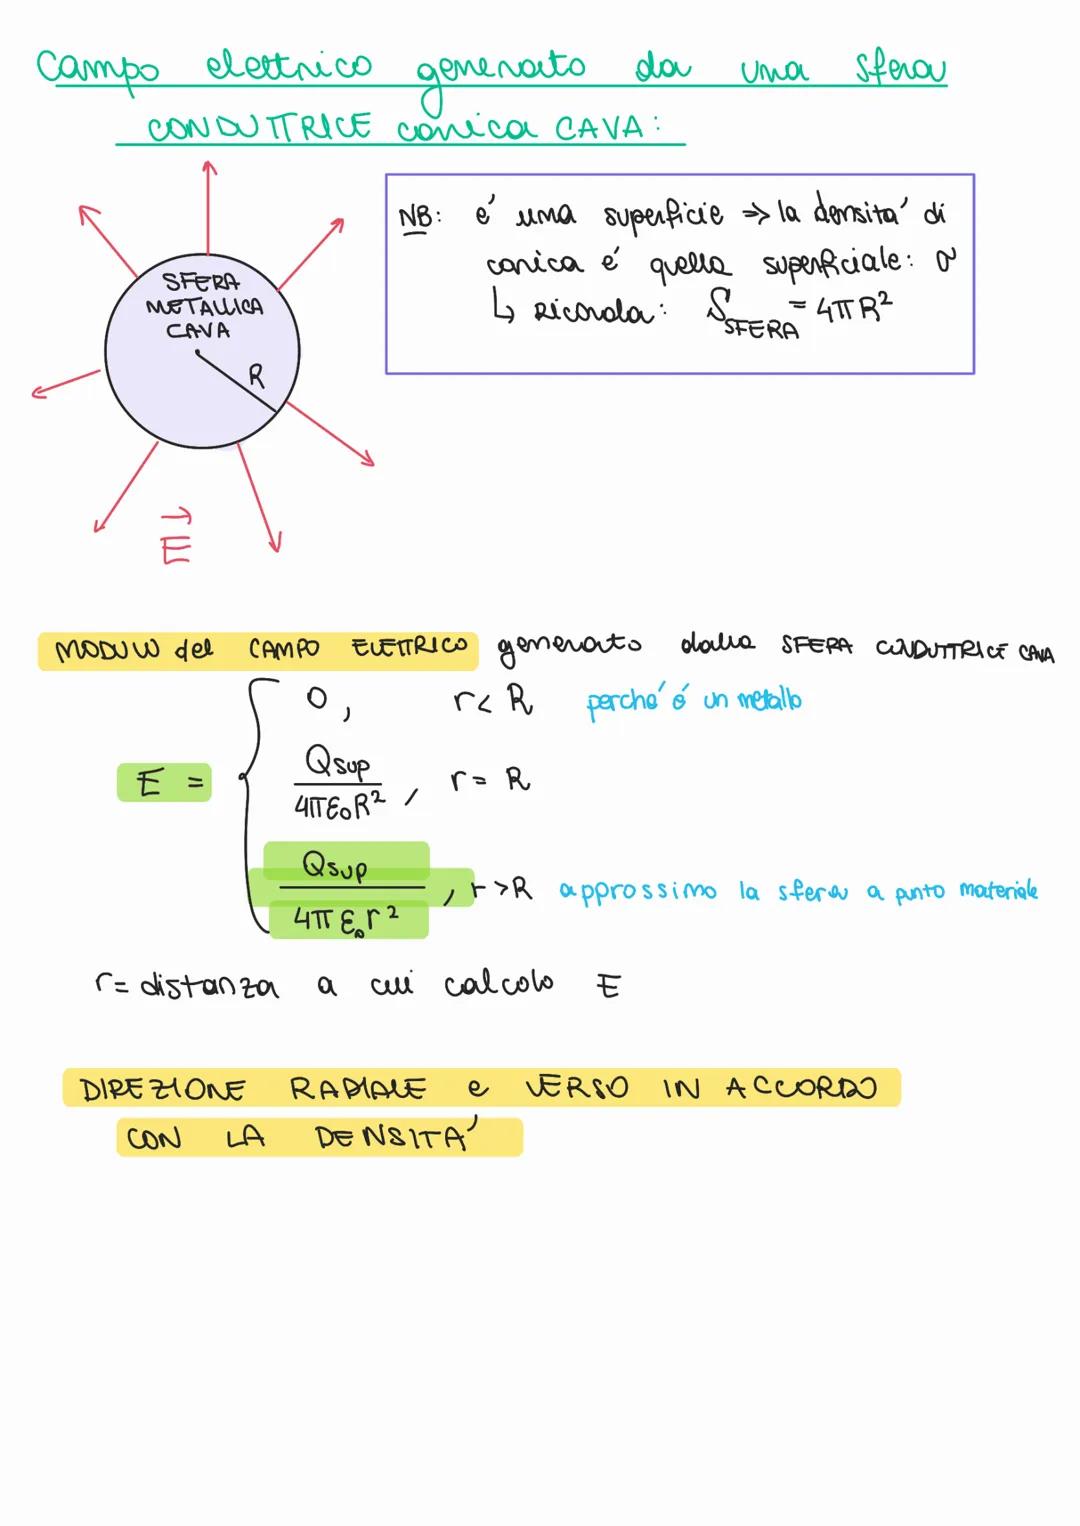 Campo elettrico generato da una sfera
CONDUTTRICE carica CAVA:
SFERA
METALLICA
CAVA
R
E
NB: é una superficie => la densita' di
carica é quella superficiale: σ
↳ Ricorda: S_SFERA = 4πR²
MODULO del CAMPO ELETTRICO generato dalla SFERA CONDUTTRICE CAVA
E = { 0, r < R perché é un metallo
Qsup / 4πε₀R², r = R
Qsup / 4πε₀r², r > R approssimo la sfera a punto materiale
r = distanza a cui calcolo E
DIREZIONE RADIALE e VERSO IN ACCORDO
CON LA DENSITA'